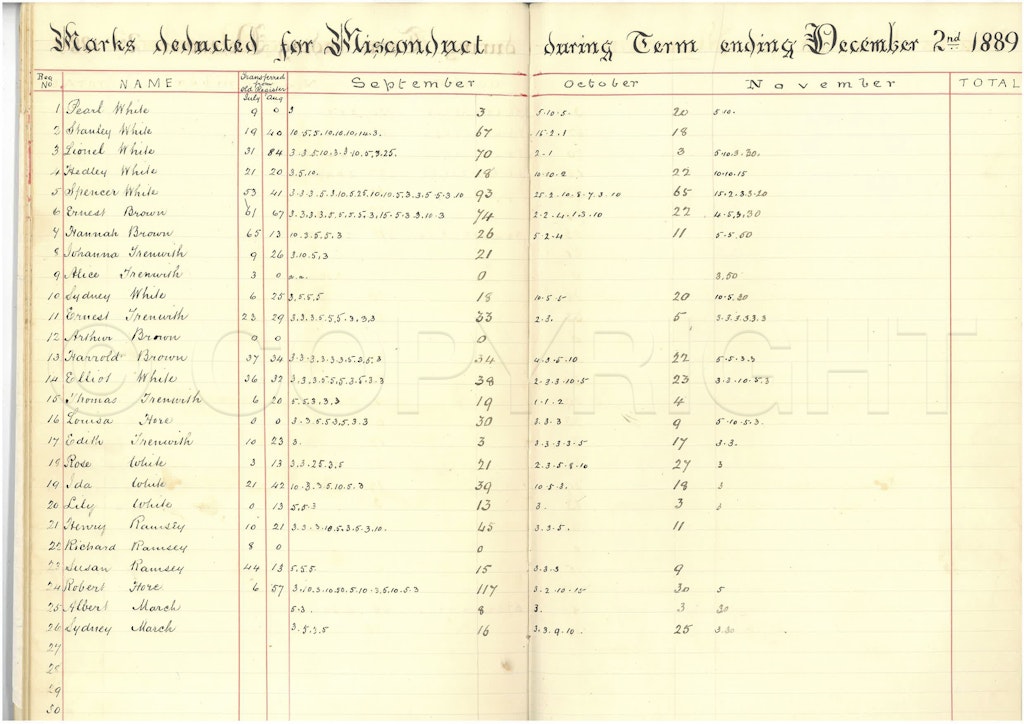 Marks deducted for Misconduct during Term ending December 2nd 1889
Reg No NAME Transferred from Old Register September October November TOTAL
July Aug
1 Pearl White 9 0 3 3 5.10.5. 20 5.10.
2 Stanley White 19 40 10.5.5.10.10.10.14.3. 67 15.2.1 18
3 Lionel White 31 84 3.3.5.10.3.3.10.5.3.25. 70 2.1 3 5.10.3.30.
4 Hedley White 21 20 3.5.10. 18 10.10.2 22 10.10.15
5 Spencer White 53 41 3.3.3.5.3.10.5.25.10.10.5.3.3.5.5.3.10 93 25.2.10.8.7.3.10 65 15.2.3.3.20
6 Ernest Brown 61 67 3.3.3.3.5.5.5.5.3.15.5.3.3.10.3 74 2.2.4.1.3.10 22 4.5.3.30
7 Hannah Brown 65 13 10.3.5.5.3 26 5.2.4 11 5.5.50
8 Johanna Trenwith 9 26 3.10.5.3 21
9 Alice Trenwith 3 0 0 3.50
10 Sydney White 6 25 3.5.5.5 18 10.5.5 20 10.5.20
11 Ernest Trenwith 23 29 3.3.3.5.5.5.3.3.3 33 2.3. 5 3.3.3.3.3.3
12 Arthur Brown 0 0 0
13 Harrold Brown 37 34 3.3.3.3.3.3.5.3.5.3 34 4.3.5.10 22 5.5.3.3
14 Elliot White 36 32 3.3.3.5.5.5.3.5.3.3 38 2.3.3.10.5 23 3.3.10.5.3
15 Thomas Trenwith 6 20 5.5.3.3.3 19 1.1.2 4
16 Louisa Hore 0 0 3.3.5.5.3.5.3.3 30 3.3.3 9 5.10.5.3.
17 Edith Trenwith 10 23 3. 3 3.3.3.3.5 17 3.3.
18 Rose White 3 13 3.3.25.3.5 21 2.3.5.8.10 27 3
19 Ida White 21 42 10.3.3.5.10.5.3 39 10.5.3. 18 3
20 Lily White 0 13 5.5.3 13 3. 3 3
21 Henry Ramsey 10 21 3.3.3.10.5.3.5.3.10. 45 3.3.5. 11
22 Richard Ramsey 8 0 0
23 Susan Ramsey 44 13 5.5.5 15 3.3.3 9
24 Robert Hore 6 57 3.10.3.10.50.5.10.3.5.10.5.3 117 3.2.10.15 30 5
25 Albert March 5.3. 8 3. 3 30
26 Sydney March 3.5.3.5 16 3.3.9.10. 25 3.30
27
28
29
30
© COPYRIGHT